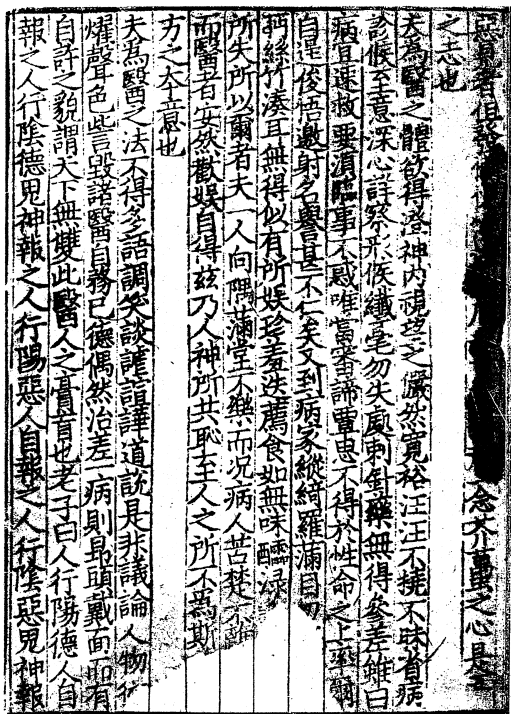 惡見者但發 念芥蠆之心是
之志也
夫爲醫之體欲得澄神內視望之儼然寬裕汪汪不撓不昧省病
診候至意深心詳察形候纖毫勿失處判針藥無得參差雖曰
病宜速救要須臨事不惑唯當審諦覃思不得於性命之上率爾
自逞俊悟邀射名譽甚不仁矣又到病家縱綺羅滿目
眄絲竹湊耳無得似有所娛珍羞迭薦食如無味醽淥
所失所以爾者夫一人向隅滿堂不樂而况病人苦楚不離
而醫者安然歡娛自得兹乃人神所共恥至人之所不爲斯
方之本意也
夫為醫之法不得多語調笑談謔諠譁道說是非議論人物
燿聲色訾毀諸醫自矜己德偶然治差一病則昂頭戴面而有
自許之貌謂天下無雙此醫人之膏肓也老子曰人行陽德人自
報之人行陰德鬼神報之人行陽惡人自報之人行陰惡鬼神報